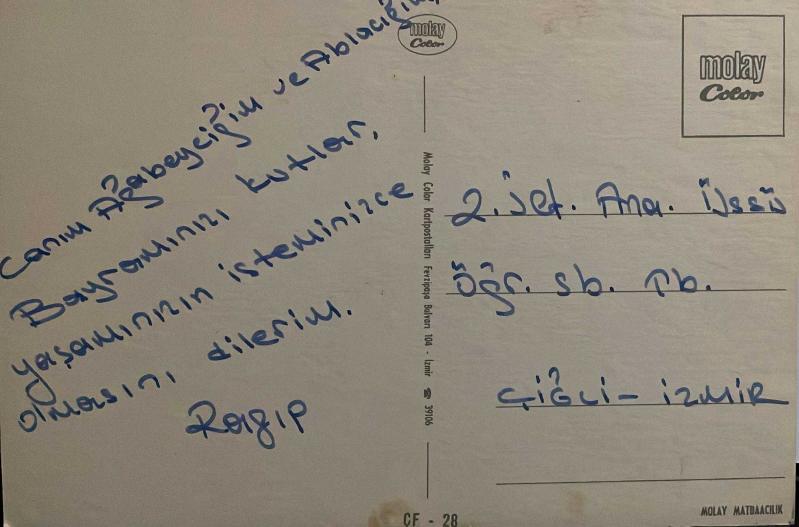 Canım Ağabeyciğim ve Ablacığım
Bayramınızı kutlar,
yaşamınızın isteminizce
olmasını dilerim.
Ragıp
molay
Color
Molay Color Kartpostalları Fevzipaşa Bulvarı 104 - İzmir ☎ 39106
CF - 28
molay
Color
2. Jet. Ana. Üssü
Öğr. sb. Tb.
ÇİĞLİ - İZMİR
MOLAY MATBAACILIK